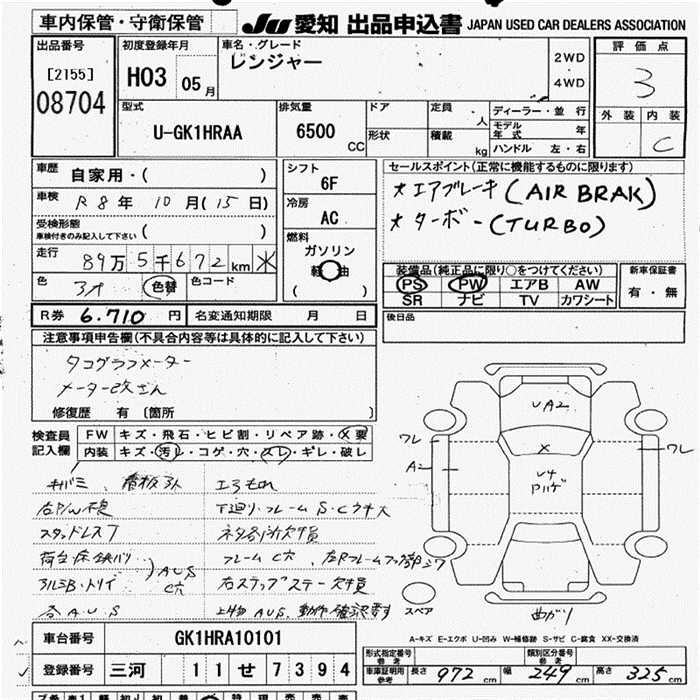 車内保管・守衛保管
JU 愛知 出品申込書 JAPAN USED CAR DEALERS ASSOCIATION
出品番号
[2155]
08704
初度登録年月
H03 05月
車名・グレード
レンジャー
2WD
4WD
評価点
3
外装 内装
C
型式
U-GK1HRAA
排気量
6500 CC
ドア
形状
定員 人
積載 kg
ディーラー・並行
モデル年式 年
ハンドル 左・右
車歴 自家用・( )
車検 R8年 10月(15日)
受検形態
車検付きのみ記入して下さい ( )
走行 89万5千672km
色 色替 色コード
シフト
6F
冷房
AC
燃料
ガソリン
軽油
( )
セールスポイント(正常に機能するものに限ります)
★エアブレーキ(AIR BRAK)
★ターボー(TURBO)
装備品(純正品に限り○をつけてください)
PS PW エアB AW
SR ナビ TV カワシート
新車保証書
有・無
R券 6.710円 名変通知期限 月 日
後日品
注意事項申告欄(不具合内容等は具体的に記入して下さい)
タコグラフメーター
メーター改ざん
修復歴 有 〔箇所 〕
検査員記入欄
FW キズ・飛石・ヒビ割・リペア跡・X要
内装 キズ・汚レ・コゲ・穴・スレ・キレ・破レ
キバミ、看板引
左P/W不良
スタッドレス
AUS
C穴
エラもれ
下廻り・フレームS・C
フレームC穴
右ステップステー欠品
上物AUS、動作確認要す
UA2
ワレ
A2
X
ワレ
スペア
曲がり
A-キズ E-エクボ U-凹み W-補修跡 S-サビ C-腐食 XX-交換済
車台番号 GK1HRA10101
登録番号 三河 11せ7394
形式指定番号
参考
類別区分番号
参考
車庫証明用
参考
長さ 972cm 幅 249cm 高さ 325cm